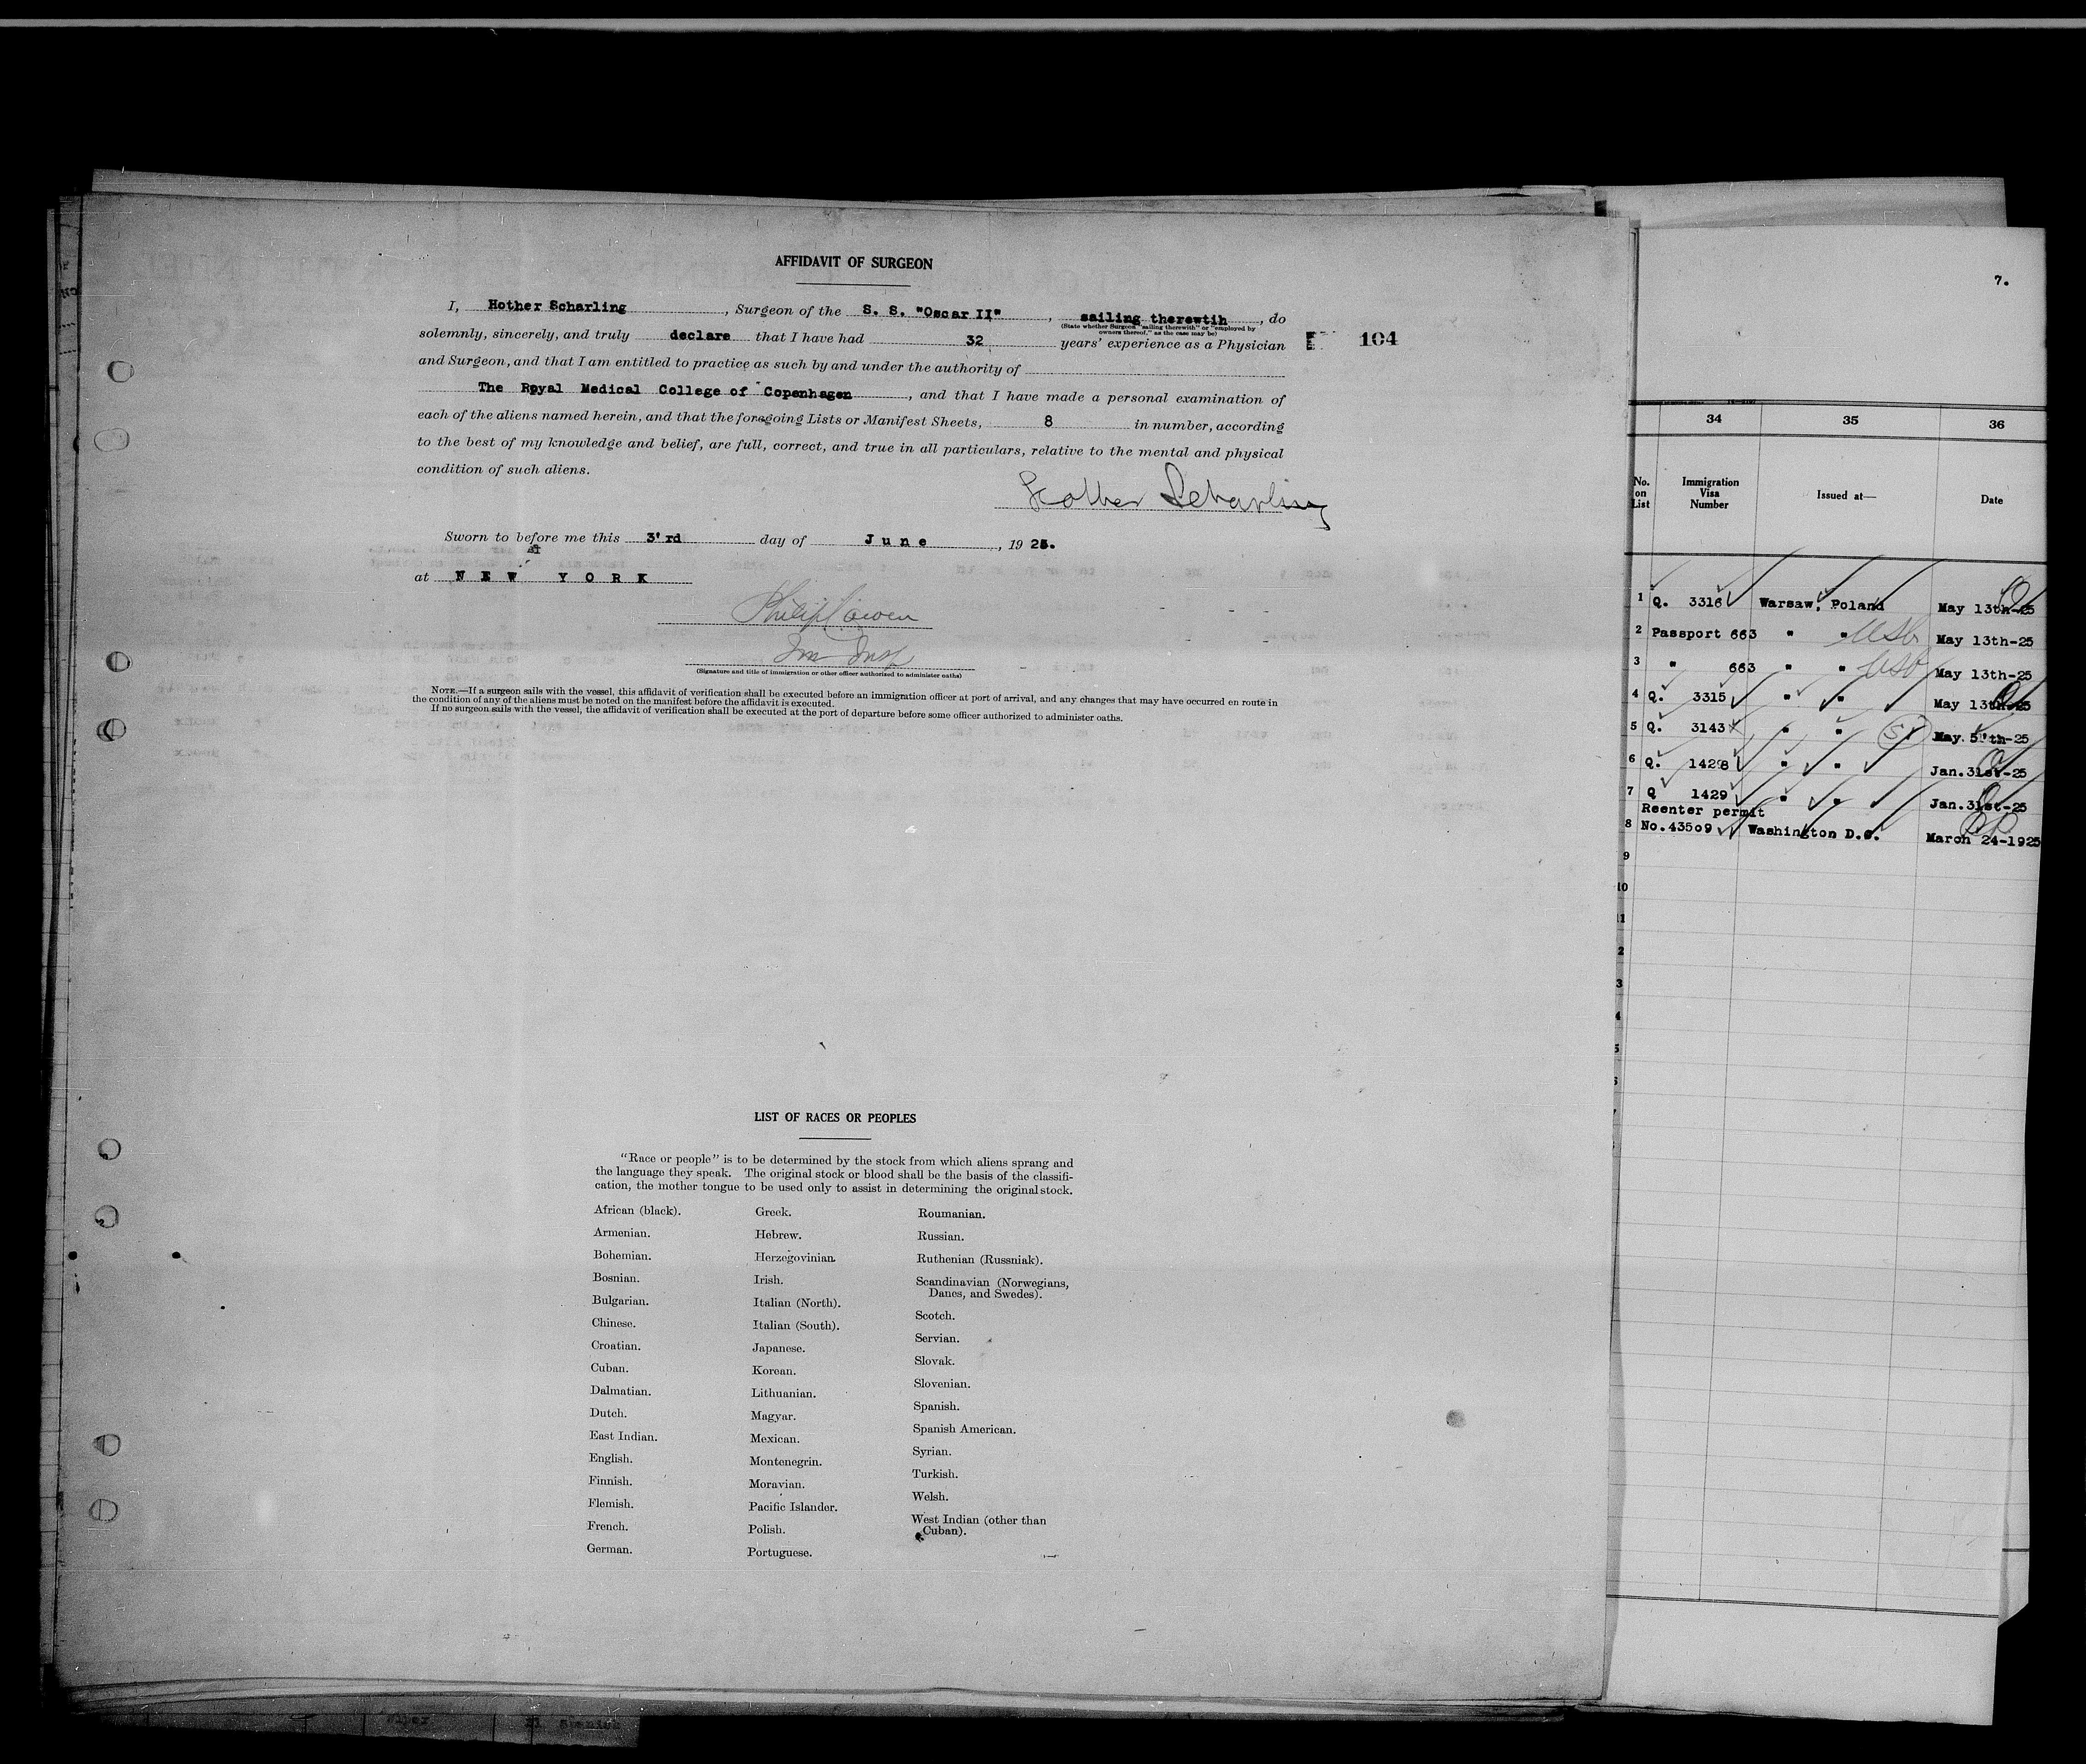 AFFIDAVIT OF SURGEON
I, Hother Scharling, Surgeon of the S. S. "Oscar II", sailing therewtih, do
(State whether Surgeon "sailing therewith" or "employed by
owners thereof," as the case may be)
solemnly, sincerely, and truly declare that I have had 32 years' experience as a Physician
104
and Surgeon, and that I am entitled to practice as such by and under the authority of
The Royal Medical College of Copenhagen, and that I have made a personal examination of
each of the aliens named herein, and that the foregoing Lists or Manifest Sheets, 8 in number, according
to the best of my knowledge and belief, are full, correct, and true in all particulars, relative to the mental and physical
condition of such aliens.
Hother Scharling
Sworn to before me this 3'rd day of June, 1925.
at NEW YORK
Philip Cowen
Im Insp
(Signature and title of immigration or other officer authorized to administer oaths)
NOTE.—If a surgeon sails with the vessel, this affidavit of verification shall be executed before an immigration officer at port of arrival, and any changes that may have occurred en route in
the condition of any of the aliens must be noted on the manifest before the affidavit is executed.
If no surgeon sails with the vessel, the affidavit of verification shall be executed at the port of departure before some officer authorized to administer oaths.
LIST OF RACES OR PEOPLES
"Race or people" is to be determined by the stock from which aliens sprang and
the language they speak. The original stock or blood shall be the basis of the classifi-
cation, the mother tongue to be used only to assist in determining the original stock.
African (black).
Armenian.
Bohemian.
Bosnian.
Bulgarian.
Chinese.
Croatian.
Cuban.
Dalmatian.
Dutch.
East Indian.
English.
Finnish.
Flemish.
French.
German.
Greek.
Hebrew.
Herzegovinian.
Irish.
Italian (North).
Italian (South).
Japanese.
Korean.
Lithuanian.
Magyar.
Mexican.
Montenegrin.
Moravian.
Pacific Islander.
Polish.
Portuguese.
Roumanian.
Russian.
Ruthenian (Russniak).
Scandinavian (Norwegians,
Danes, and Swedes).
Scotch.
Servian.
Slovak.
Slovenian.
Spanish.
Spanish American.
Syrian.
Turkish.
Welsh.
West Indian (other than
Cuban).
7.
34 35 36
No.
on
List
Immigration
Visa
Number
Issued at—
Date
1 Q. 3316 Warsaw, Poland May 13th-25
2 Passport 663 " " USb May 13th-25
3 " 663 " " USb May 13th-25
4 Q. 3315 " " May 13th-25
5 Q. 3143 " " SI May 5'th-25
6 Q. 1428 " " Jan.31st-25
7 Q 1429 " " Jan.31st-25
Reenter permit
8 No.43509 Washington D.C. March 24-1925
9
10
11
2
3
4
5
6